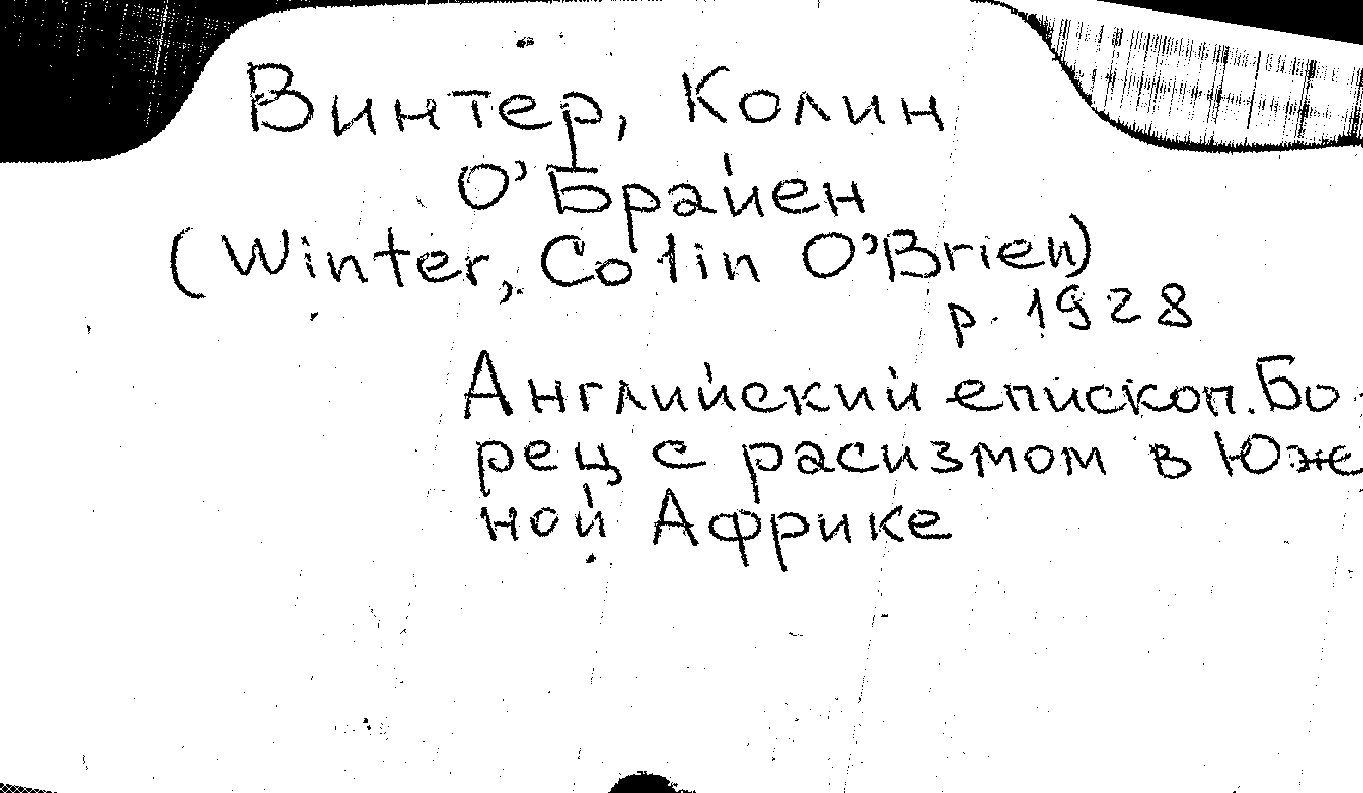 Винтер, Колин
О'Брайен
(Winter, Colin O'Brien)
р. 1928
Английский епископ. Бо-
рец с расизмом в Юж
ной Африке